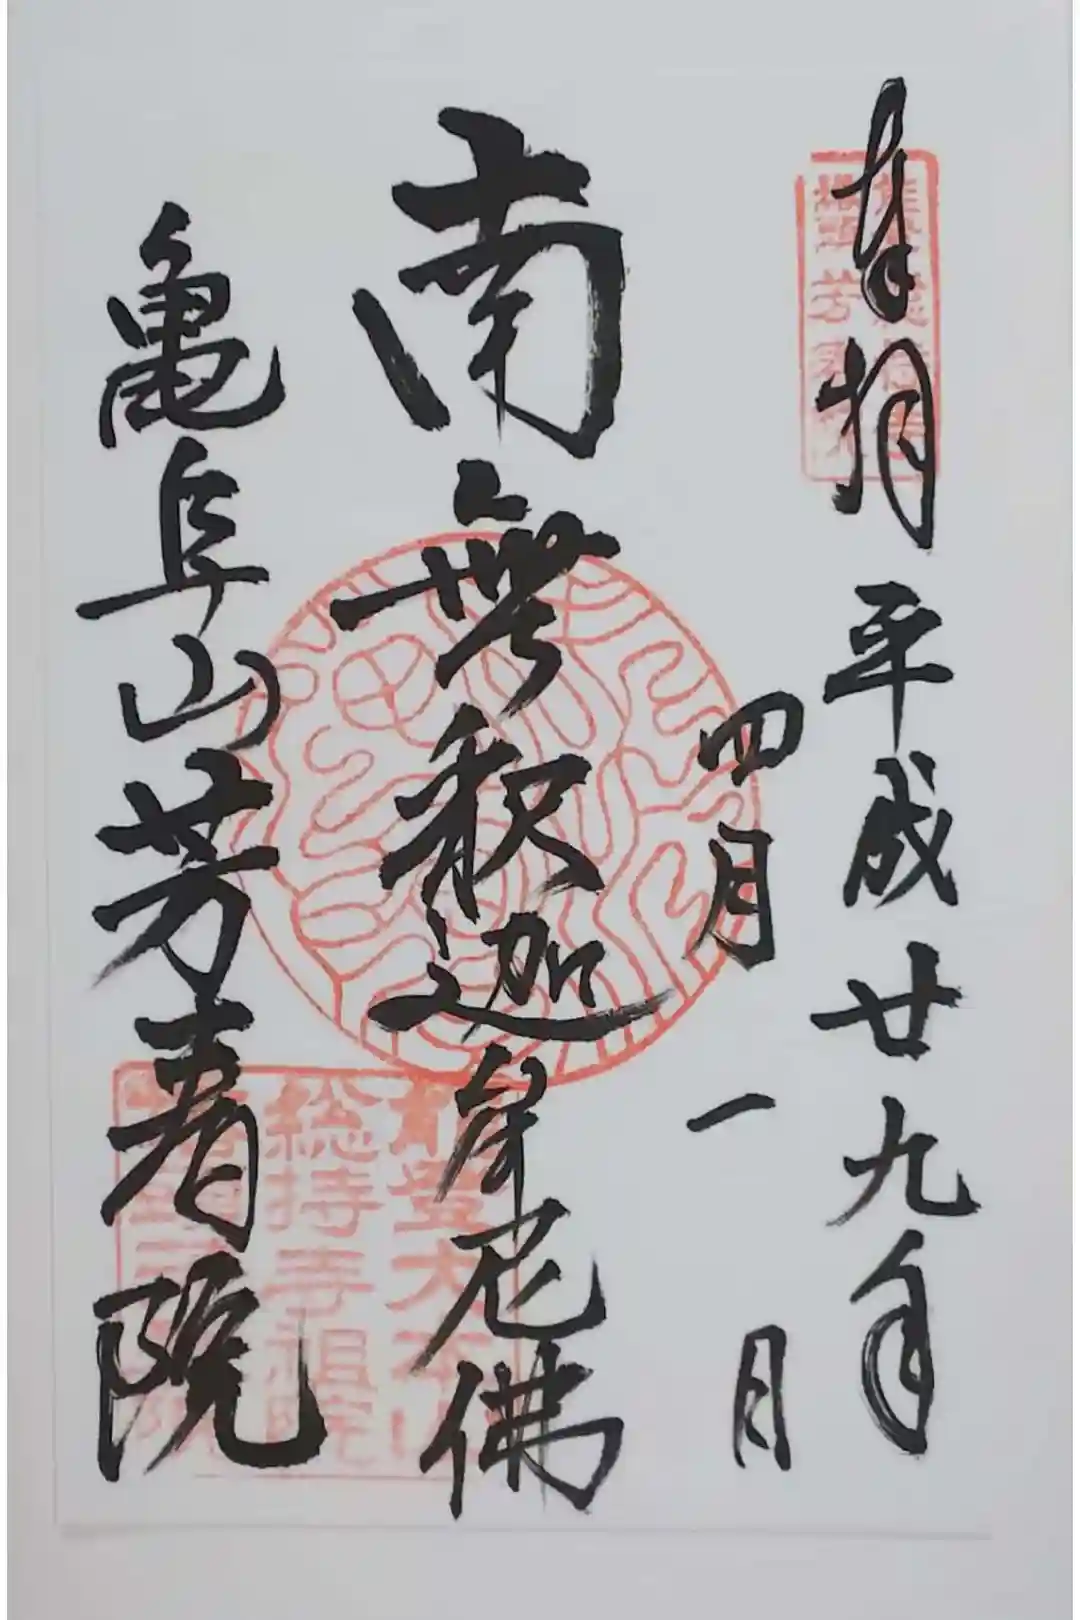 奉拝 平成廿九年
四月一日
南無釈迦牟尼佛
亀阜山芳春院
能登大本山
総持寺祖院
塔頭芳春院